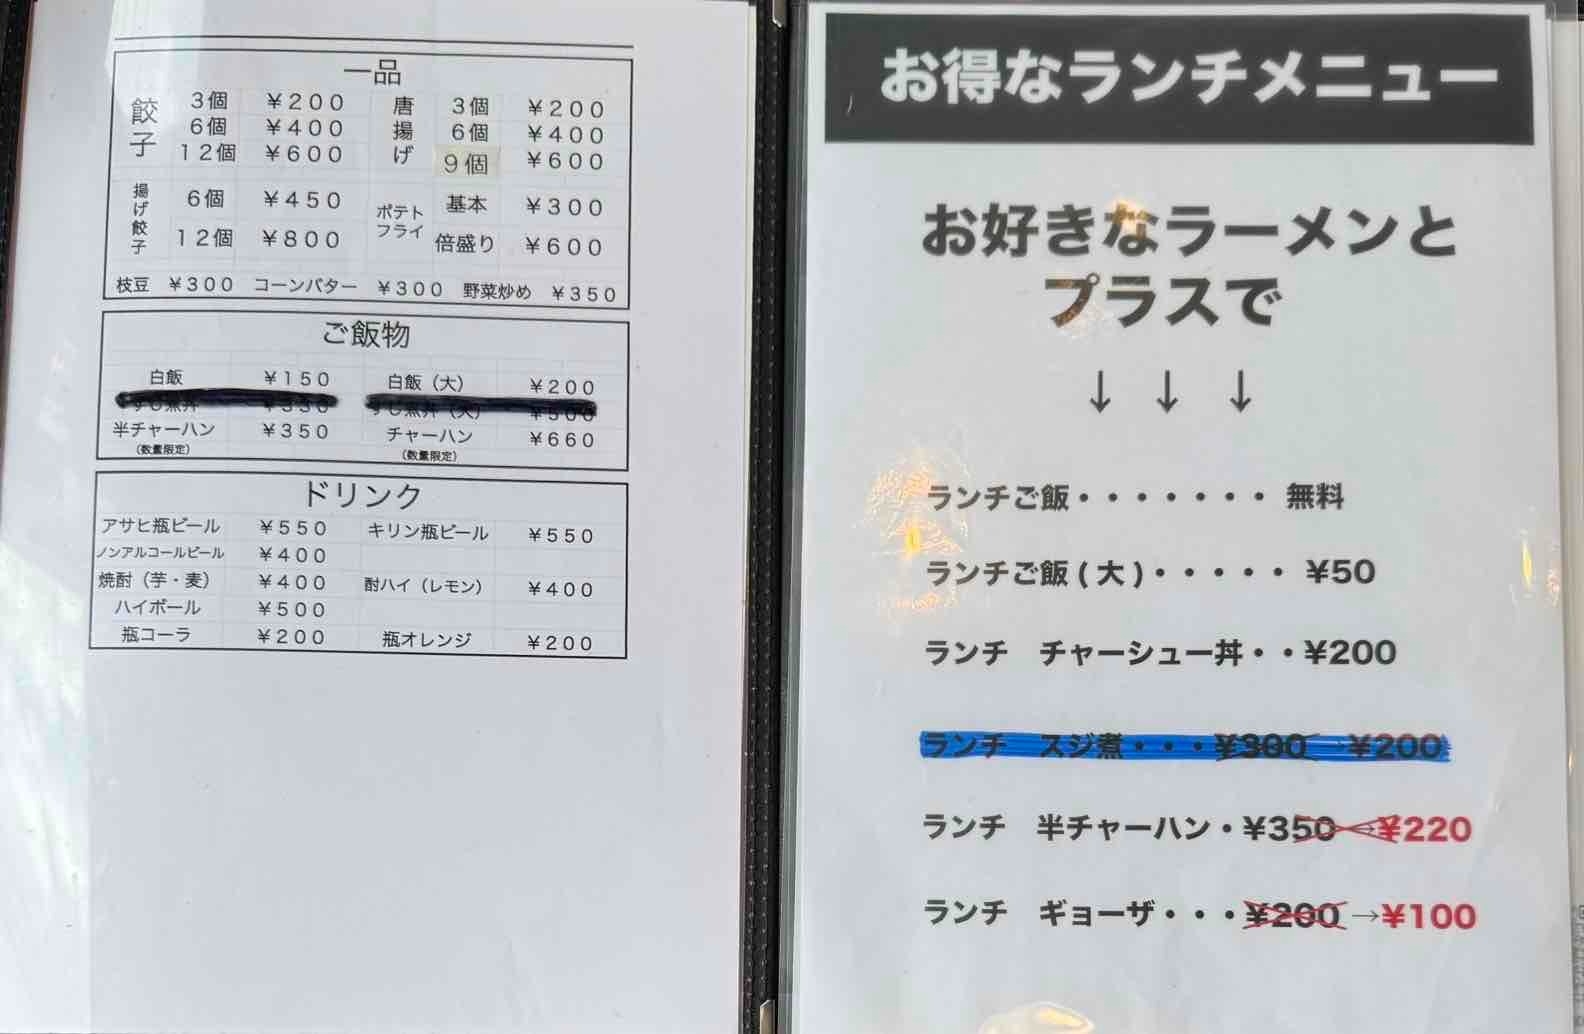 一品
餃子 3個 ¥200 唐揚げ 3個 ¥200
6個 ¥400 6個 ¥400
12個 ¥600 9個 ¥600
揚げ餃子 6個 ¥450 ポテトフライ 基本 ¥300
12個 ¥800 倍盛り ¥600
枝豆 ¥300 コーンバター ¥300 野菜炒め ¥350
ご飯物
白飯 ¥150 白飯（大） ¥200
すじ煮丼 ¥350 すじ煮丼（大） ¥500
半チャーハン ¥350 チャーハン ¥660
（数量限定） （数量限定）
ドリンク
アサヒ瓶ビール ¥550 キリン瓶ビール ¥550
ノンアルコールビール ¥400
焼酎（芋・麦） ¥400 酎ハイ（レモン） ¥400
ハイボール ¥500
瓶コーラ ¥200 瓶オレンジ ¥200
お得なランチメニュー
お好きなラーメンと
プラスで
↓ ↓ ↓
ランチご飯・・・・・・・ 無料
ランチご飯(大)・・・・・ ¥50
ランチ チャーシュー丼・・¥200
ランチ スジ煮・・・¥300→¥200
ランチ 半チャーハン・¥350→¥220
ランチ ギョーザ・・・¥200→¥100